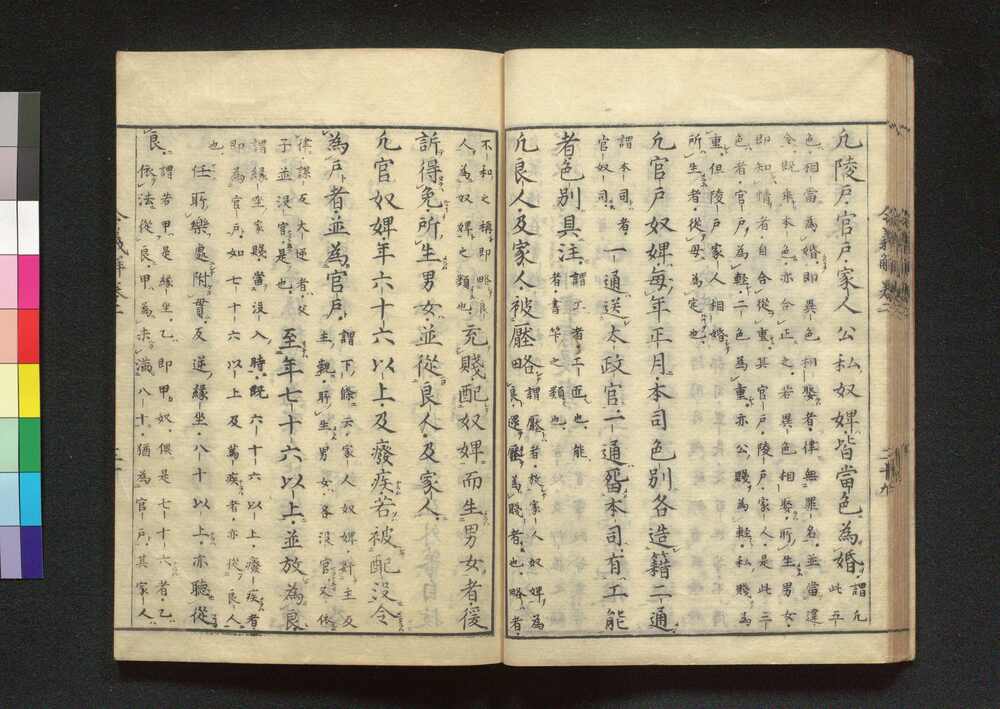 凢陵戸官戸家人公私奴婢皆當色為婚
謂凢
此五
色相當為婚即異色相娶者律無罪名並當違
令既乖本色亦合正之若異色相娶所生男女
即知情者自合從重其官戸陵戸家人是此三
色者官戸為輕二色為重亦公賤為輕私賤為
重但陵戸家人相婚
所生者從母為定也
凢官戸奴婢每年正月本司色別各造籍二通
謂本司者
官奴司
一通送太政官一通畱本司有工能
者色別具注
謂工者工匠也能
者書筭之類也
凢良人及家人被壓略
謂壓者放家人奴婢為
良還壓為賤者也略者
不和之稱即略良
人為奴婢之類也
充賤配奴婢而生男女者後
訴得免所生男女並從良人及家人
凢官奴婢年六十六以上及癈疾若被配沒令
為戸者並為官戸
謂下條云家人奴婢奸主及
主親所生男女各沒官又依
律謀反大逆者父
子並沒官是也
至年七十六以上並放為良
謂縁坐家賤當沒入時既六十六以上癈疾者
即為官戸如七十六以上及篤疾者亦從良人
也
任所樂處附貫反逆縁坐八十以上亦聽從
良
謂若甲是縁坐乙即甲奴倶是七十六者乙
依法從良甲為未滿八十猶為官戸其家人